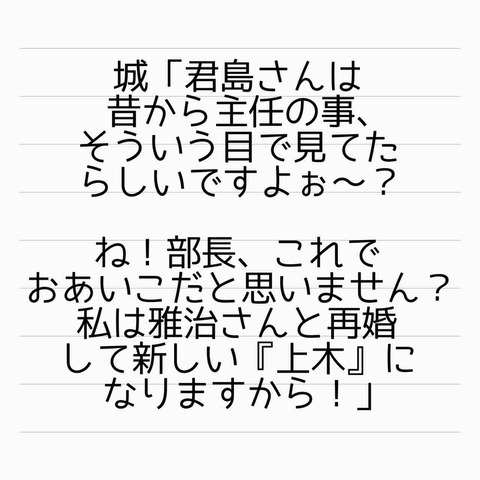 城「君島さんは
昔から主任の事、
そういう目で見てた
らしいですよぉ〜？
ね！部長、これで
おあいこだと思いません？
私は雅治さんと再婚
して新しい『上木』に
なりますから！」